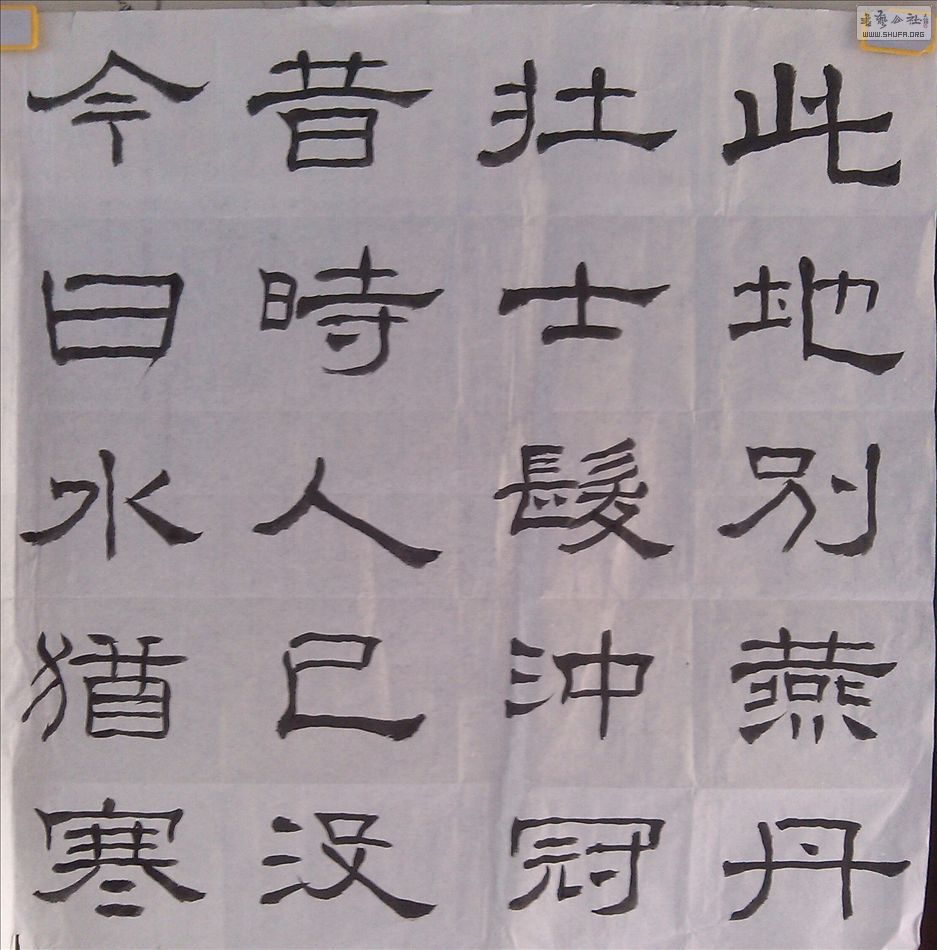 此地別燕丹
壮士髮沖冠
昔時人已没
今日水猶寒
WWW.SHUFA.ORG